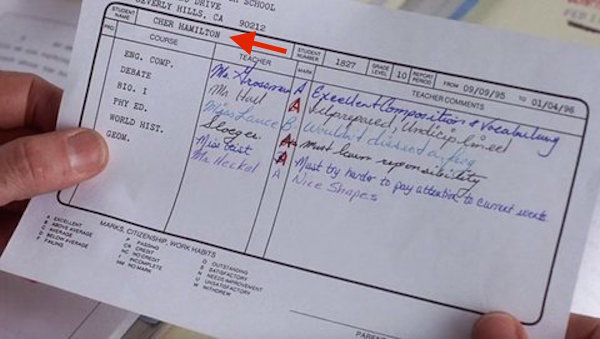 SCHOOL
DRIVE
BEVERLY HILLS, CA 90212
STUDENT NAME CHER HAMILTON STUDENT NUMBER 1827 GRADE LEVEL 10 REPORT PERIOD FROM 09/09/95 TO 01/04/96
PRD. COURSE TEACHER MARK TEACHER COMMENTS
ENG. COMP. Mr. Grossman A Excellent Composition & Vocabulary
DEBATE Mr. Hall A Unprepared, Undisciplined
BIO. I Miss Lance B Wouldn't dissect a frog
PHY ED. Stoeger A Must learn responsibility
WORLD HIST. Miss Geist A Must try harder to pay attention to current events
GEOM. Mr. Heckel A Nice Shapes
MARKS, CITIZENSHIP, WORK HABITS
A EXCELLENT P PASSING O OUTSTANDING
B ABOVE AVERAGE CR CREDIT S SATISFACTORY
C AVERAGE NC NO CREDIT N NEEDS IMPROVEMENT
D BELOW AVERAGE I INCOMPLETE U UNSATISFACTORY
F FAILING NM NO MARK W WITHDREW